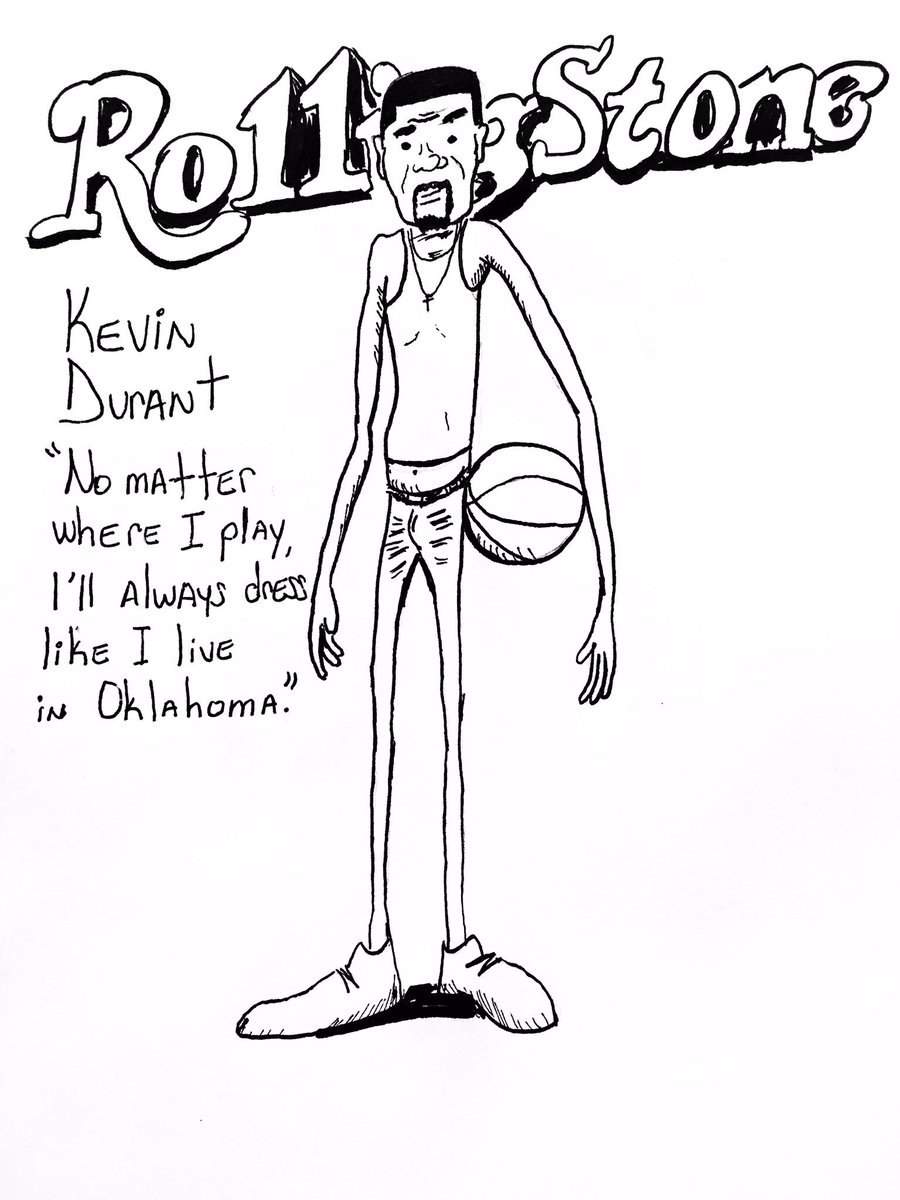 Rolling Stone
KEVIN
DURANT
"No matter
where I play,
I'll always dress
like I live
in Oklahoma."